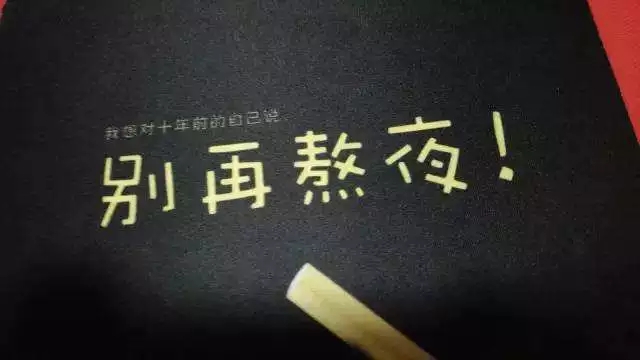 我想对十年前的自己说
别再熬夜！